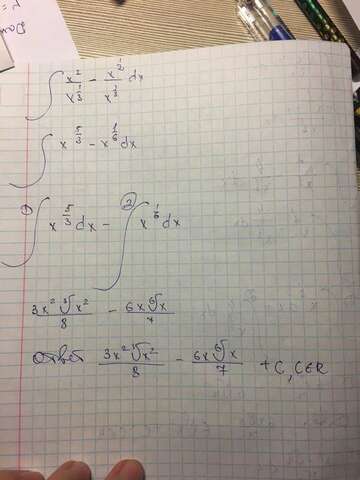 ∫ x²/x^(1/3) − x^(1/2)/x^(1/3) dx
∫ x^(5/3) − x^(1/6) dx
① ∫ x^(5/3) dx − ② ∫ x^(1/6) dx
3x² ∛x²/8 − 6x ⁶√x/7
Ответ 3x² ∛x²/8 − 6x ⁶√x/7 + C, C∈R